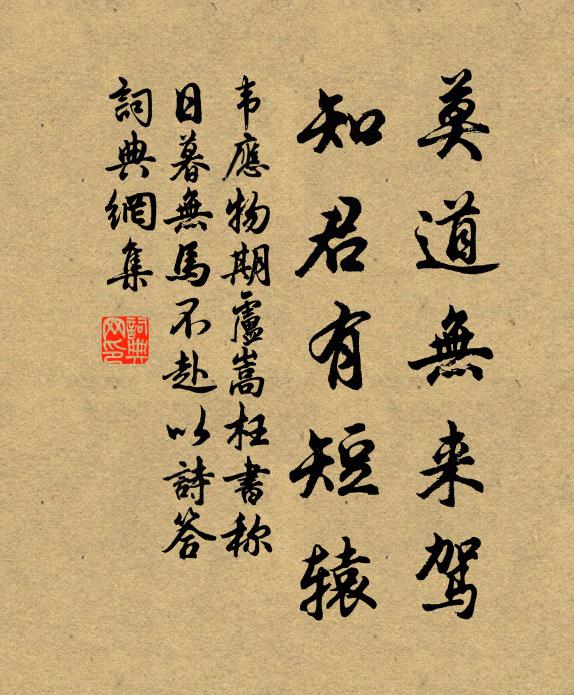 莫道無来驾
知君有短辕
韦應物期盧嵩枉書称
日暮無馬不赴以詩答
詞典網集
詞典网印